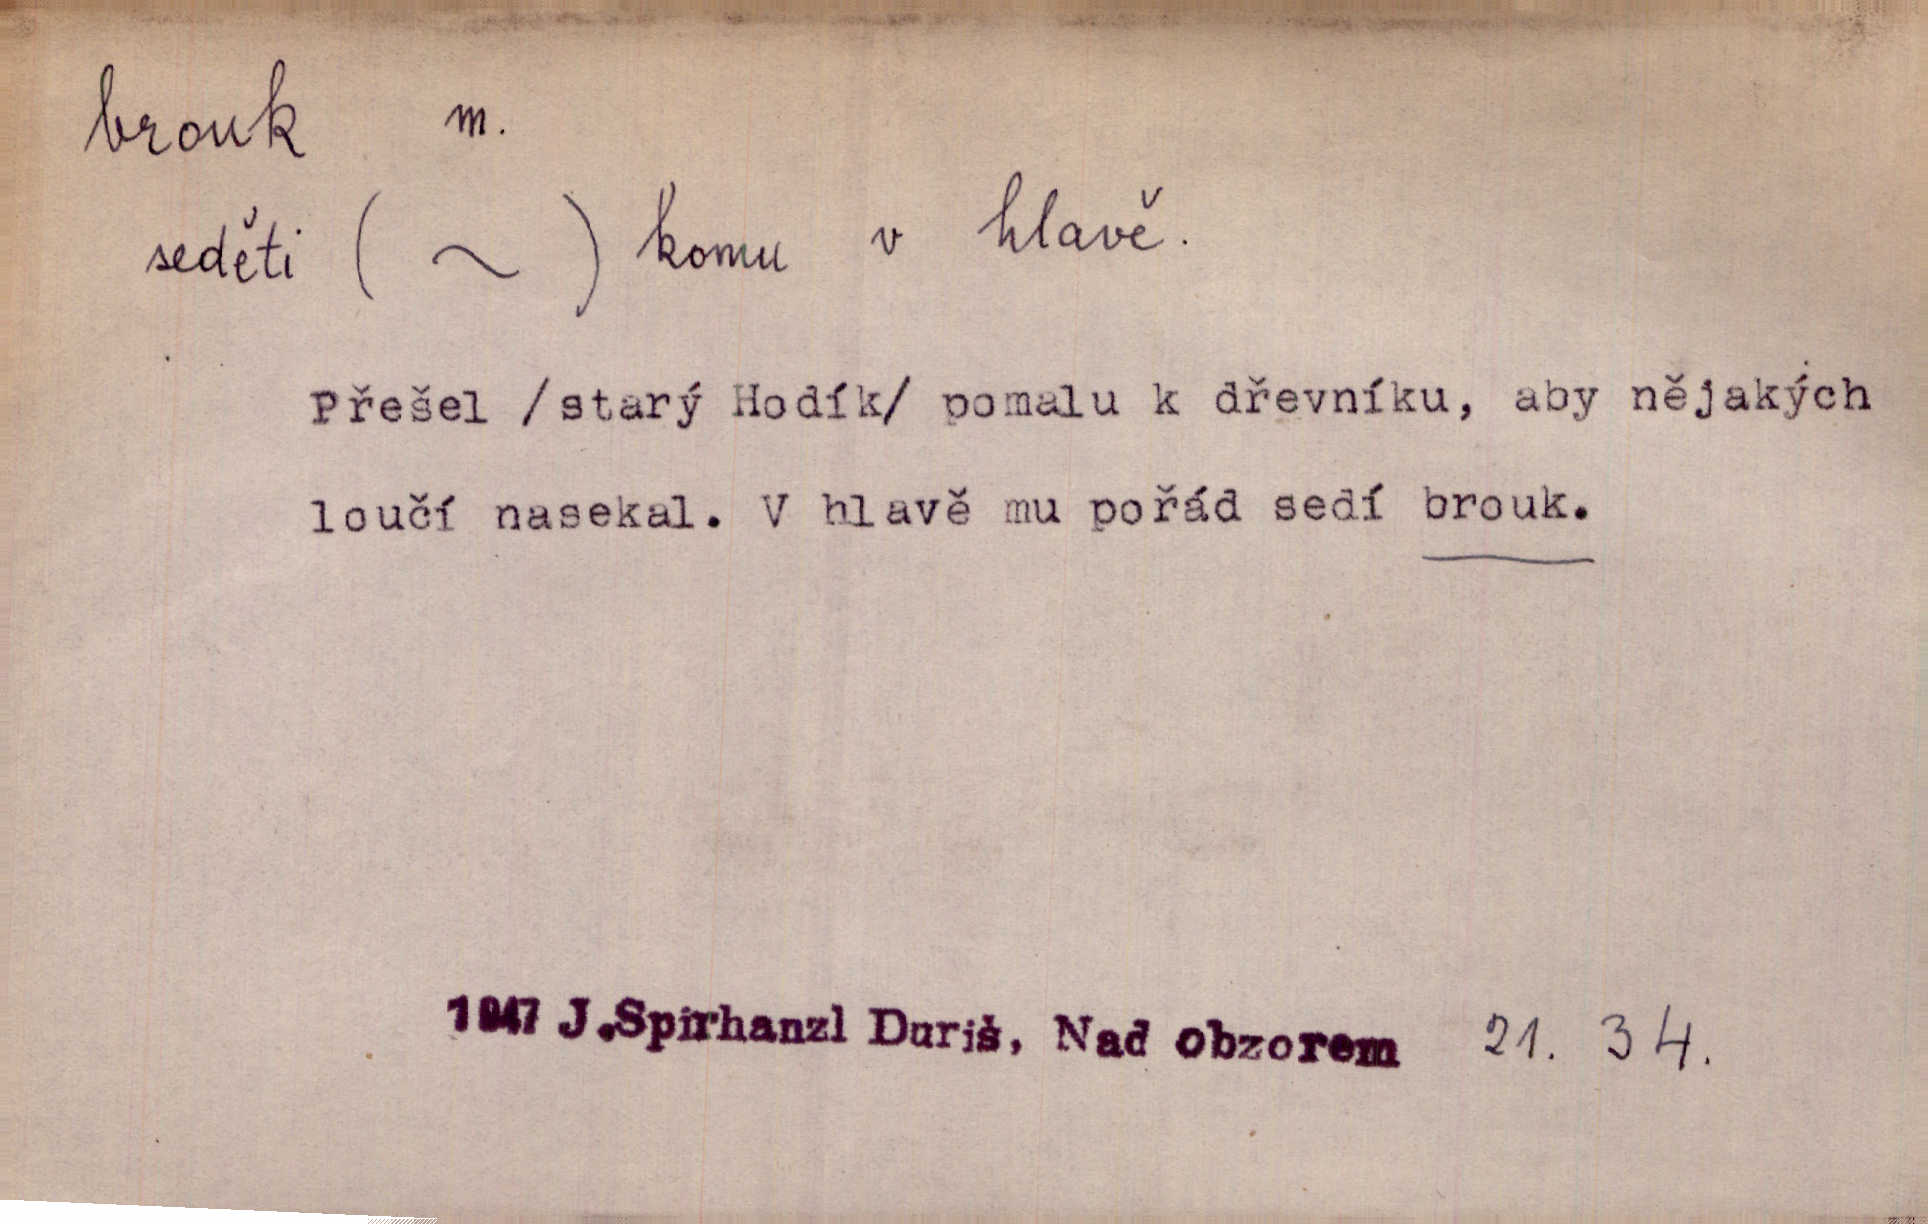 brouk m.
seděti ( ~ ) komu v hlavě.
Přešel /starý Hodík/ pomalu k dřevníku, aby nějakých
loučí nasekal. V hlavě mu pořád sedí brouk.
1947 J.Spirhanzl Duriš, Nad obzorem 21. 34.